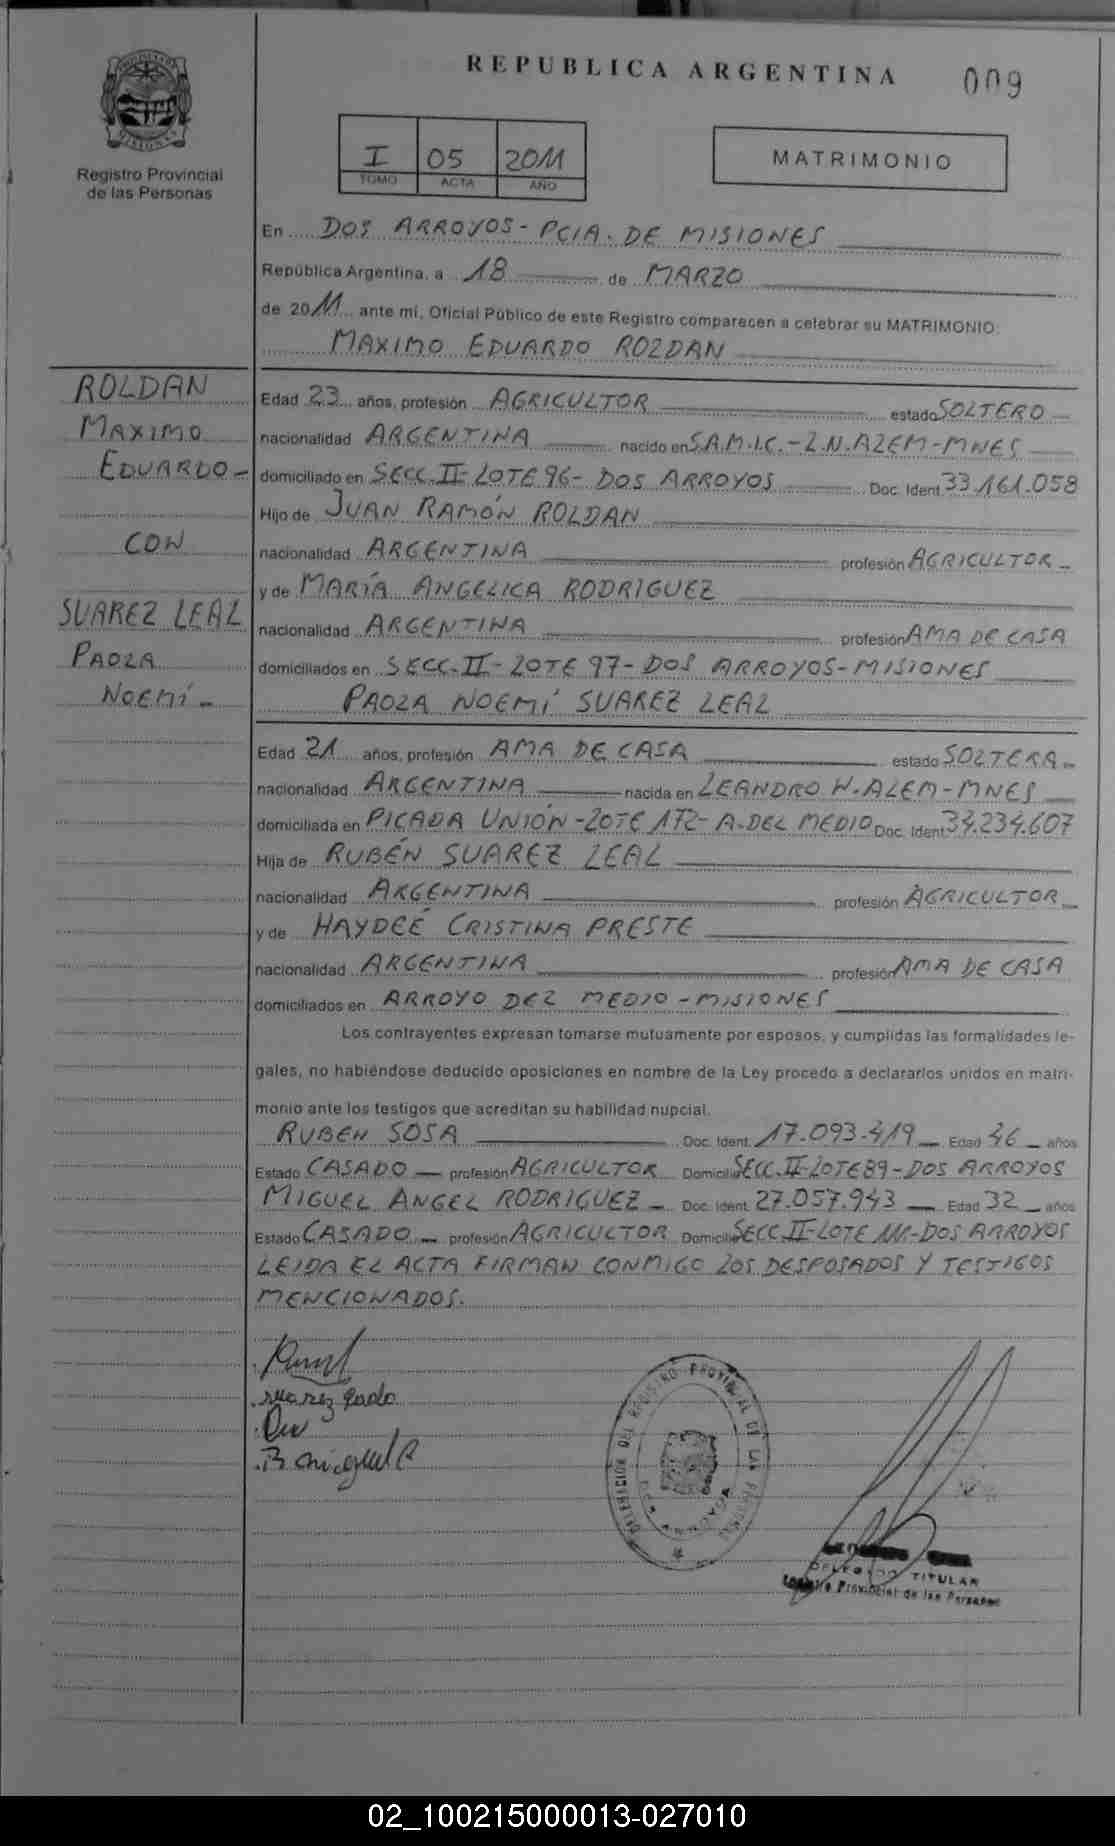 REPUBLICA ARGENTINA
009
Registro Provincial
de las Personas
I 05 2011
TOMO ACTA AÑO
MATRIMONIO
En DOS ARROYOS - PCIA. DE MISIONES
República Argentina, a 18 de MARZO
de 2011 ante mí, Oficial Público de este Registro comparecen a celebrar su MATRIMONIO:
MAXIMO EDUARDO ROLDAN
ROLDAN
MAXIMO
EDUARDO -
CON
SUAREZ LEAL
PAOLA
NOEMÍ -
Edad 23 años, profesión AGRICULTOR estado SOLTERO
nacionalidad ARGENTINA nacido en S.A.M.I.C. - L.N. ALEM - MNES
domiciliado en SECC. II - LOTE 96 - DOS ARROYOS Doc. Ident. 33.161.058
Hijo de JUAN RAMÓN ROLDAN
nacionalidad ARGENTINA profesión AGRICULTOR
y de MARÍA ANGELICA RODRIGUEZ
nacionalidad ARGENTINA profesión AMA DE CASA
domiciliados en SECC. II - LOTE 97 - DOS ARROYOS - MISIONES
PAOLA NOEMÍ SUAREZ LEAL
Edad 21 años, profesión AMA DE CASA estado SOLTERA
nacionalidad ARGENTINA nacida en LEANDRO N. ALEM - MNES
domiciliada en PICADA UNIÓN - LOTE 172 - A. DEL MEDIO Doc. Ident. 34.234.607
Hija de RUBÉN SUAREZ LEAL
nacionalidad ARGENTINA profesión AGRICULTOR
y de HAYDEÉ CRISTINA PRESTE
nacionalidad ARGENTINA profesión AMA DE CASA
domiciliados en ARROYO DEL MEDIO - MISIONES
Los contrayentes expresan tomarse mutuamente por esposos, y cumplidas las formalidades le-
gales, no habiéndose deducido oposiciones en nombre de la Ley procedo a declararlos unidos en matri-
monio ante los testigos que acreditan su habilidad nupcial.
RUBEN SOSA Doc. Ident. 17.093.419 Edad 46 años
Estado CASADO profesión AGRICULTOR Domicilio SECC. II - LOTE 89 - DOS ARROYOS
MIGUEL ANGEL RODRIGUEZ Doc. Ident. 27.057.943 Edad 32 años
Estado CASADO profesión AGRICULTOR Domicilio SECC. II - LOTE 111 - DOS ARROYOS
LEIDA EL ACTA FIRMAN CONMIGO LOS DESPOSADOS Y TESTIGOS
MENCIONADOS.
DELEGACION DEL REGISTRO PROVINCIAL DE LAS PERSONAS
DOS ARROYOS
DELEGADO TITULAR
Registro Provincial de las Personas
02_100215000013-027010